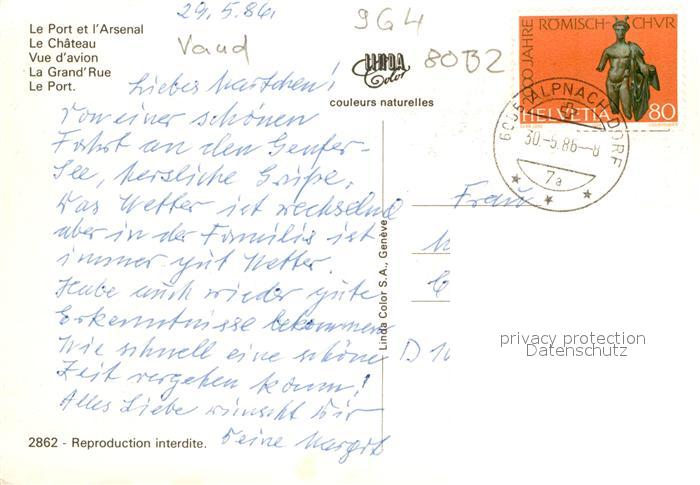 29.5.86.
964
Vaud
80B2
Le Port et l'Arsenal
Le Château
Vue d'avion
La Grand'Rue
Le Port.
LINDA
Color
couleurs naturelles
2000 JAHRE RÖMISCH-CHUR
HELVETIA 80
6055 ALPNACH DORF
30.-5.86-8
7a
Liebes
von einer schönen
Fahrt an den Genfer-
See, herzliche Grüße.
Das Wetter ist wechselnd
aber in der Familie ist
immer gut Wetter.
Habe auch wieder gute
Erkenntnisse bekommen
Wie schnell eine schöne
Zeit vergehen kann!
Alles Liebe wünscht Dir
Deine Margrit
Frau
D 10
Linda Color S.A., Genève
privacy protection
Datenschutz
2862 - Reproduction interdite.